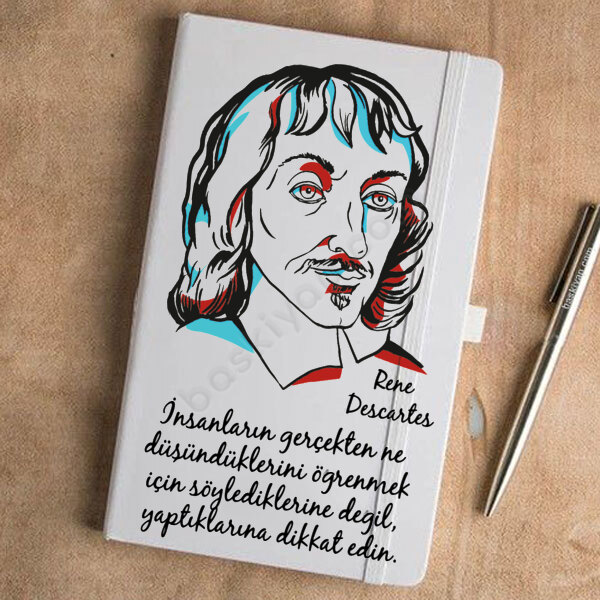 Rene
Descartes
İnsanların gerçekten ne
düşündüklerini öğrenmek
için söylediklerine değil,
yaptıklarına dikkat edin.
baskiyap.com